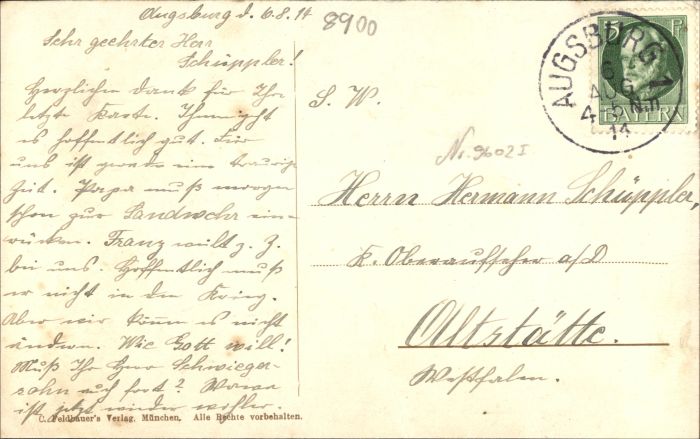 Augsburg d. 6.8.14
8900
Sehr geehrter Herr
Schüppler!
Herzlichen Dank für Ihre
letzte Karte. Ihnen geht
es hoffentlich gut. Für
uns ist gerade eine traurige
Zeit. Papa muß morgen
schon zur Landwehr ein-
rücken. Franz weilt z. Z.
bei uns. Hoffentlich muß
er nicht in den Krieg.
Aber wir können es nicht
ändern. Wie Gott will!
Muß Ihr Herr Schwieger-
sohn auch fort?
ist jetzt wieder wohler.
C. Feldbauer's Verlag. München. Alle Rechte vorbehalten.
5 Pf
BAYERN
AUGSBURG 1
6
AUG
4-5 N.m
14
S. W.
Nr. 9602 I
Herrn Hermann Schüppler,
K. Oberaufseher a/D
Altstätte.
Westfalen.